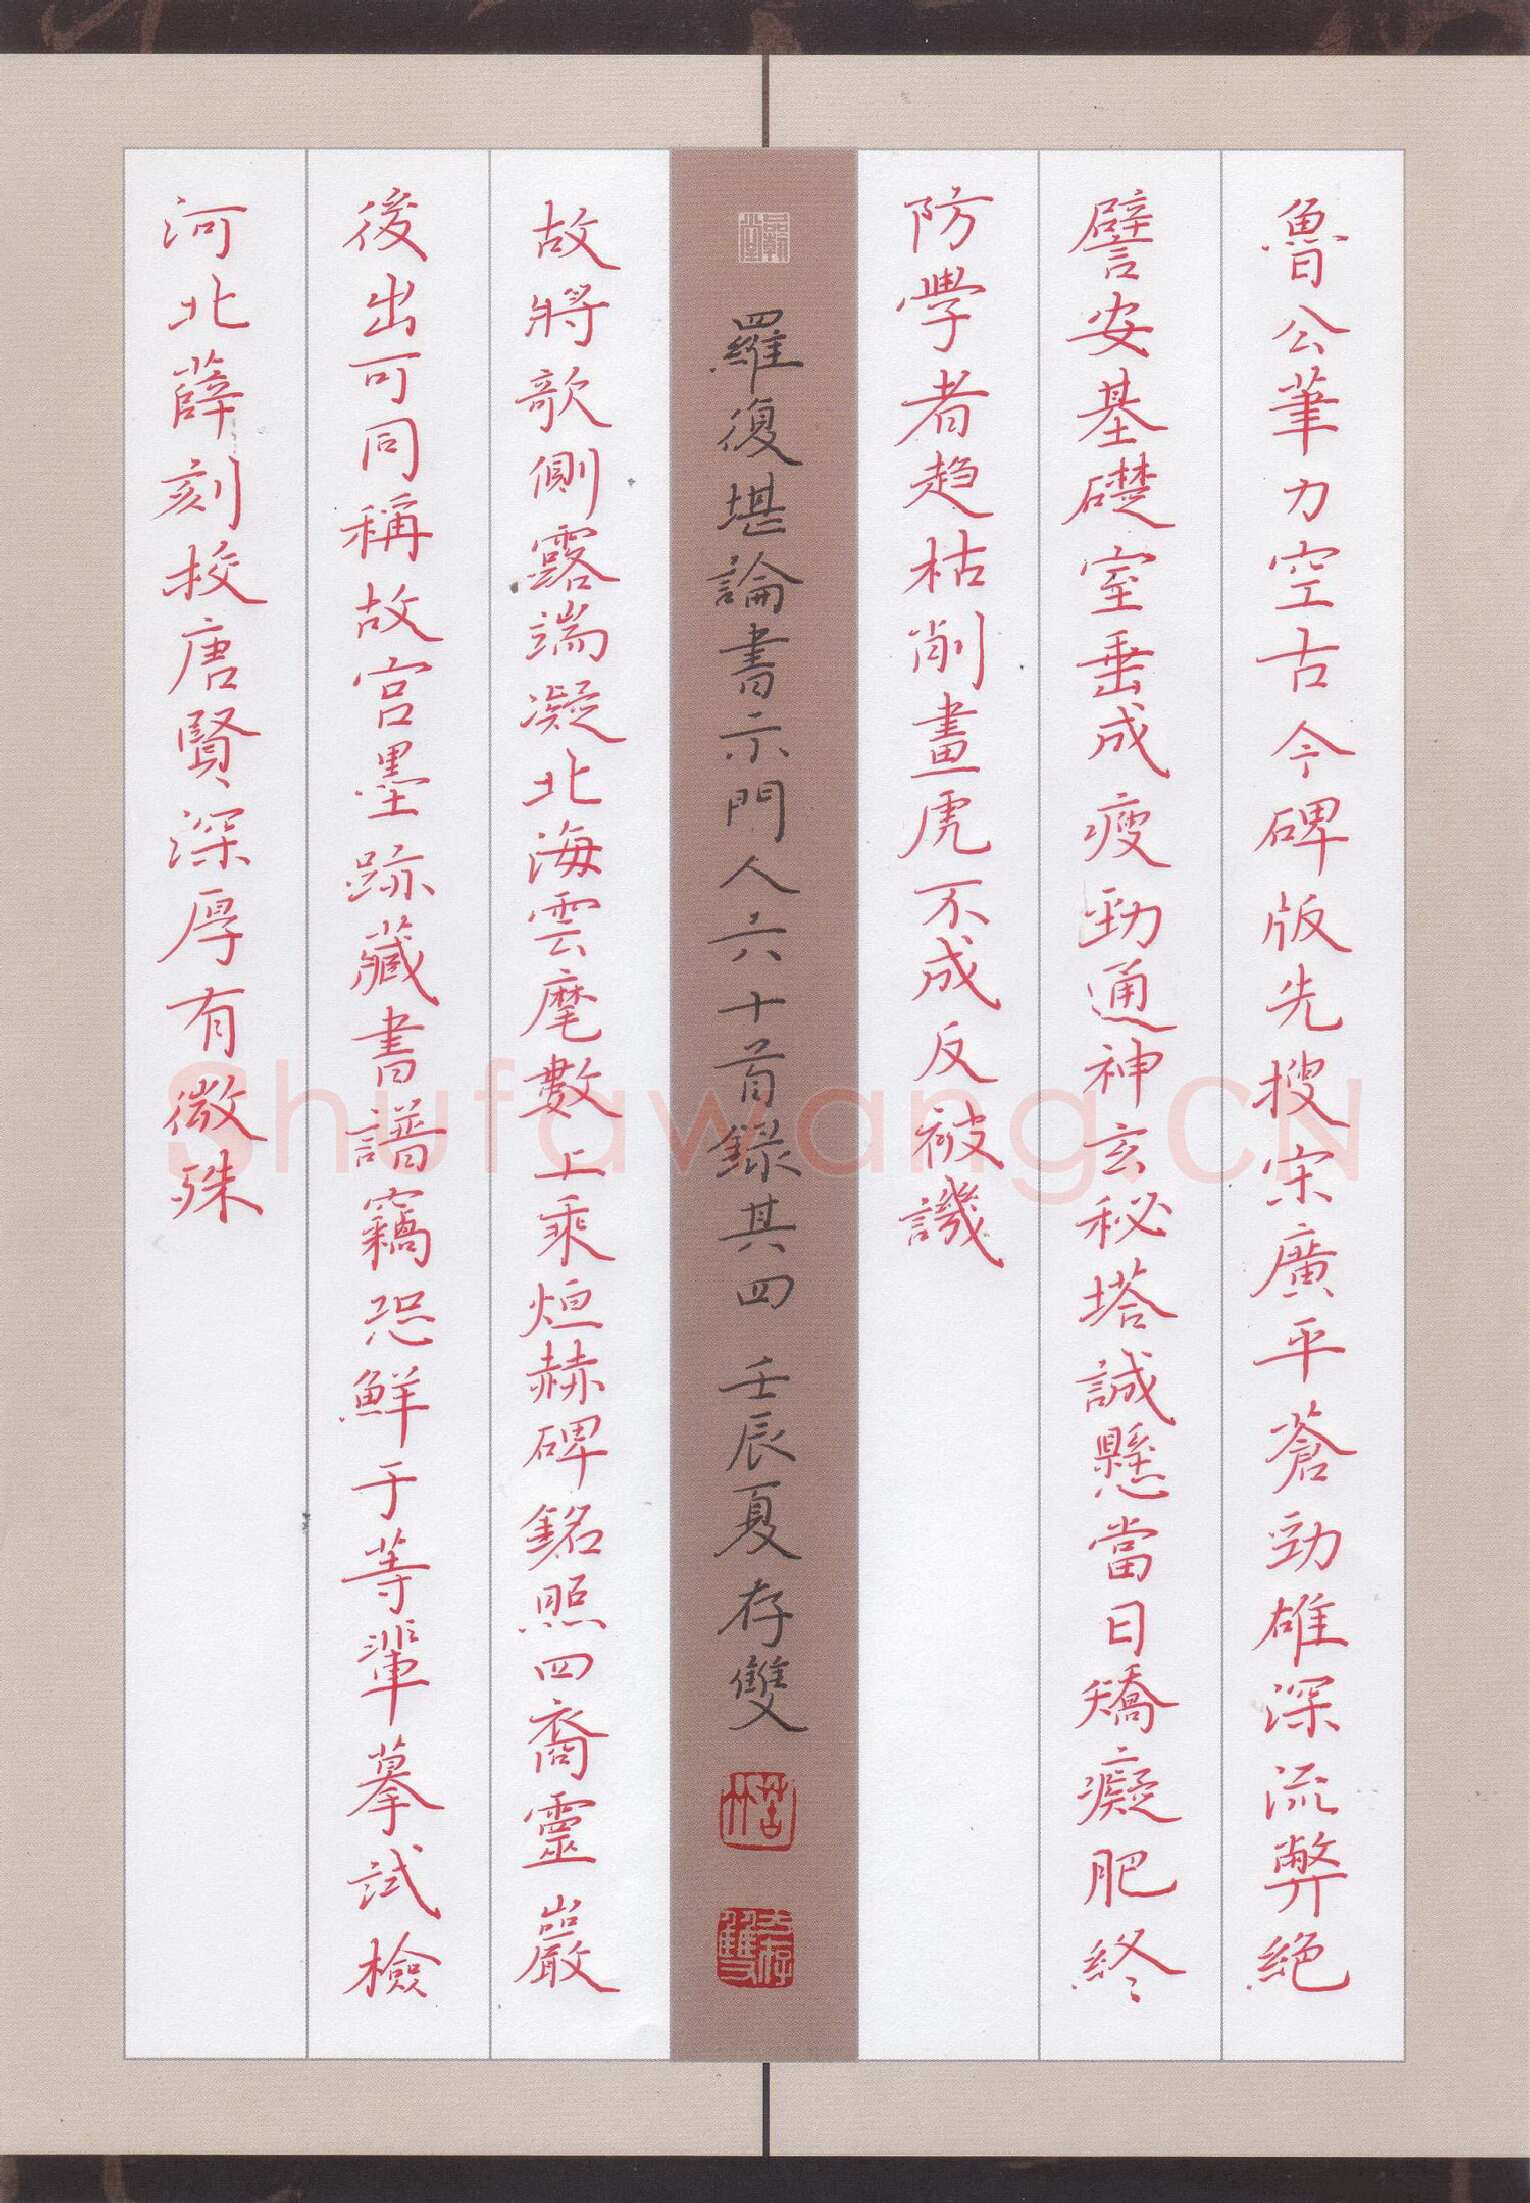 魯公筆力空古今碑版先搜宋廣平蒼勁雄深流弊絕
譬安基礎室垂成瘦勁通神玄秘塔誠懸當日矯癡肥終
防學者趋枯削畫虎不成反被譏
羅復堪論書示門人六十首錄其四 壬辰夏 存雙
故將欹側露端凝北海雲麾數上乘烜赫碑銘照四裔靈巖
後出可同稱故宮墨跡藏書譜竊恐鮮于等輩摹試檢
河北薛刻校唐賢深厚有微殊
Shufawang.CN